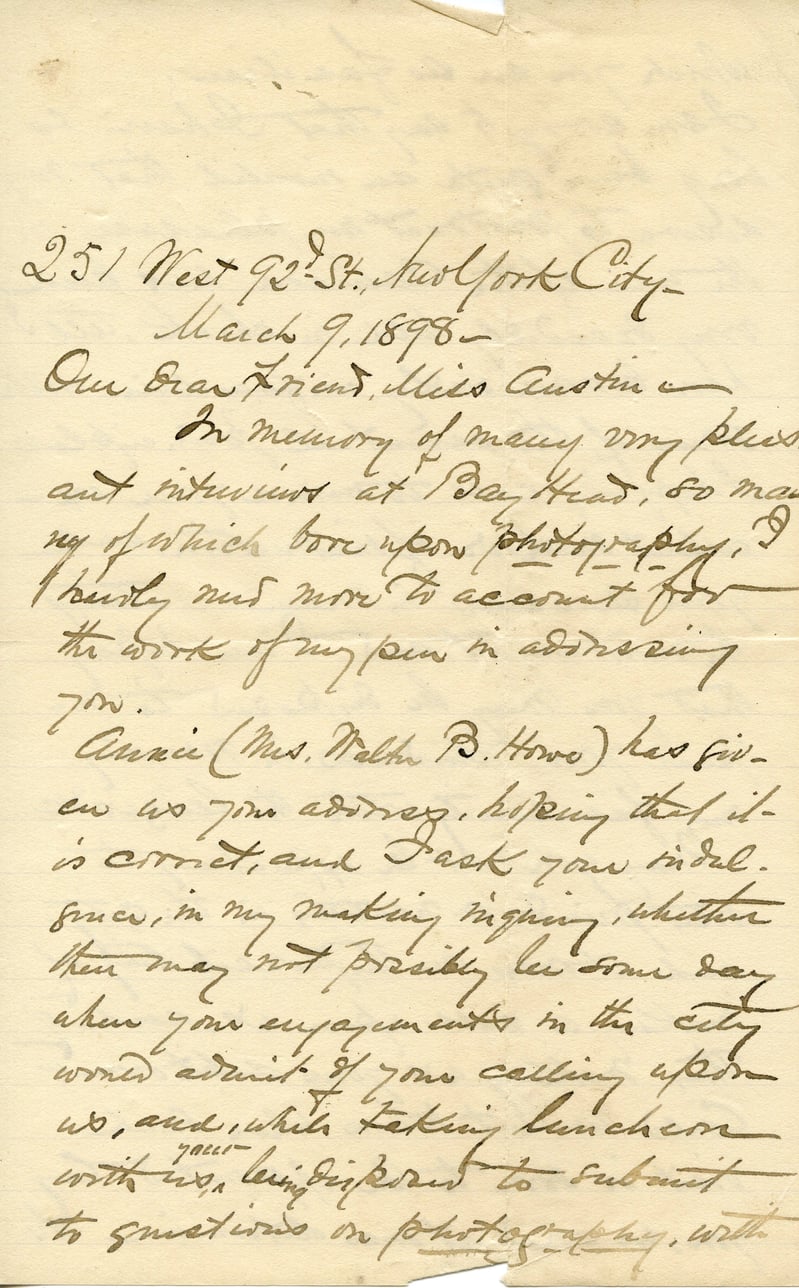 251 West 92d St., New York City–
March 9, 1898–
Our dear Friend, Miss Austin –
In memory of many very pleas
ant interviews at Bay Head, so ma
ny of which bore upon photography, I
hardly need more to account for
the work of my pen in addressing
you.
Annie (Mrs. Walter B. Howe) has giv-
en us your address, hoping that it
is correct, and I ask your indul-
gence, in my making inquiry, whether
there may not possibly be some day
when your engagements in the city
would admit of your calling upon
us, and, while taking luncheon
with us, your being disposed to submit
to questions on photography, with